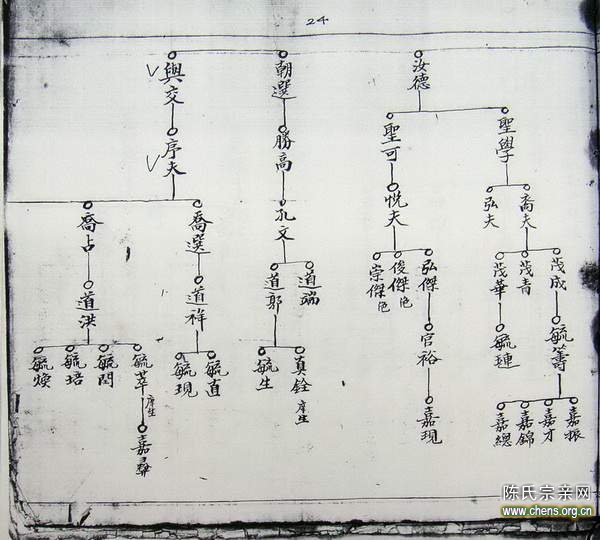 24
汝德
聖學
聖可
喬夫
弘夫
悦夫
茂成
茂青
茂華
弘傑
俊傑
崇傑
毓籌
毓璉
官裕
嘉振
嘉才
嘉錦
嘉總
嘉現
朝選
勝高
孔文
道端
道郭
真銓 庠生
毓生
與交
序夫
喬選
喬占
道祥
道洪
毓直
毓現
毓萃 庠生
毓閏
毓培
毓煥
嘉彝
陈氏宗亲网
www.chens.org.cn